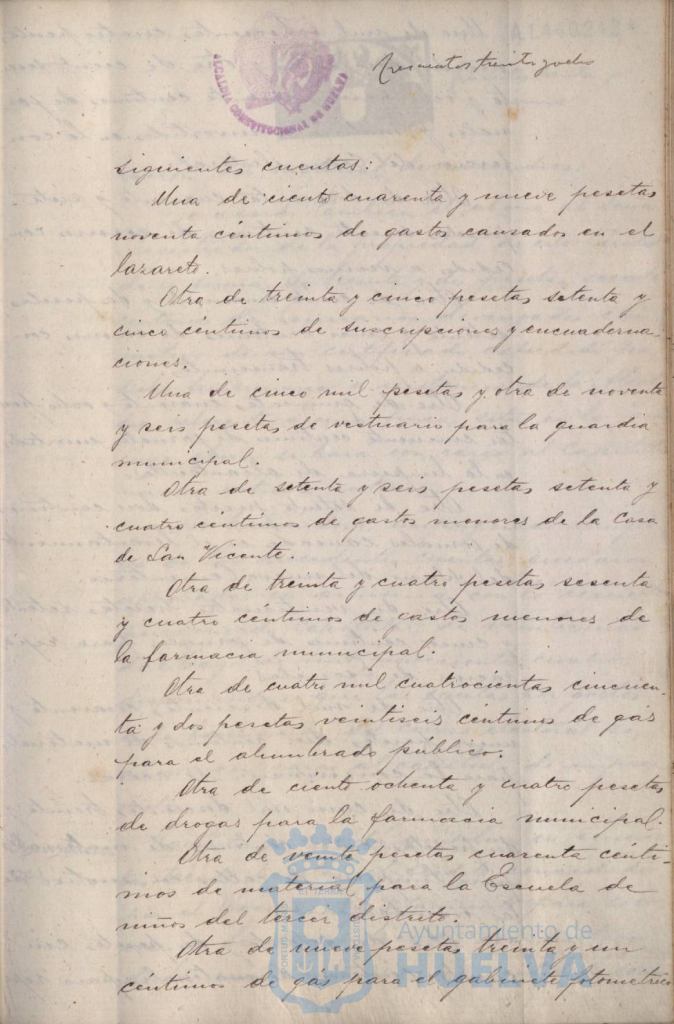 trescientos treinta y ocho
ALCALDIA CONSTITUCIONAL DE HUELVA
siguientes cuentas:
Una de ciento cuarenta y nueve pesetas
noventa céntimos de gastos causados en el
lazareto.
Otra de treinta y cinco pesetas setenta y
cinco céntimos de suscripciones y encuaderna-
ciones.
Una de cinco mil pesetas y otra de noventa
y seis pesetas de vestuario para la guardia
municipal.
Otra de setenta y seis pesetas setenta y
cuatro céntimos de gastos menores de la Casa
de San Vicente.
Otra de treinta y cuatro pesetas sesenta
y cuatro céntimos de gastos menores de
la farmacia municipal.
Otra de cuatro mil cuatrocientas cincuen-
ta y dos pesetas veintiseis céntimos de gas
para el alumbrado público.
Otra de ciento ochenta y cuatro pesetas
de drogas para la farmacia municipal.
Otra de veinte pesetas cuarenta cénti-
mos de material para la Escuela de
niños del tercer distrito.
Otra de nueve pesetas treinta y un
céntimos de gas para el gabinete fotométrico
Ayuntamiento de
HUELVA